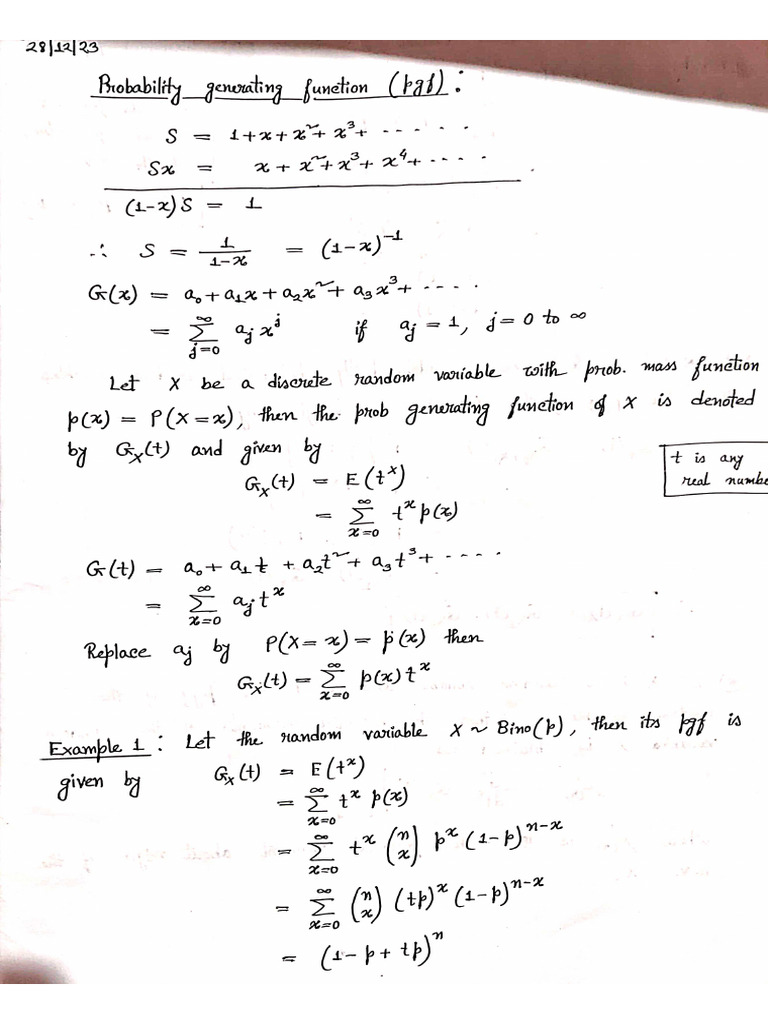 28/12/23
Probability generating function (pgf) :
S = 1+x+x²+x³+ ------
Sx = x+x²+x³+x⁴+ -----
(1-x)S = 1
∴ S = 1/(1-x) = (1-x)⁻¹
G(x) = a₀+a₁x+a₂x²+a₃x³+ ----
= ∑_{j=0}^{∞} aⱼ xʲ if aⱼ = 1, j=0 to ∞
Let X be a discrete random variable with prob. mass function
p(x) = P(X=x), then the prob generating function of X is denoted
by G_X(t) and given by
t is any
real numbe
G_X(t) = E(tˣ)
= ∑_{x=0}^{∞} tˣ p(x)
G(t) = a₀+a₁t+a₂t²+a₃t³+ ----
= ∑_{x=0}^{∞} aⱼ tˣ
Replace aj by P(X=x) = p(x) then
G_X(t) = ∑_{x=0}^{∞} p(x) tˣ
Example 1 : Let the random variable X ~ Bino(p), then its pgf is
given by G_X(t) = E(tˣ)
= ∑_{x=0}^{∞} tˣ p(x)
= ∑_{x=0}^{∞} tˣ (n x) pˣ (1-p)ⁿ⁻ˣ
= ∑_{x=0}^{∞} (n x) (tp)ˣ (1-p)ⁿ⁻ˣ
= (1-p+tp)ⁿ